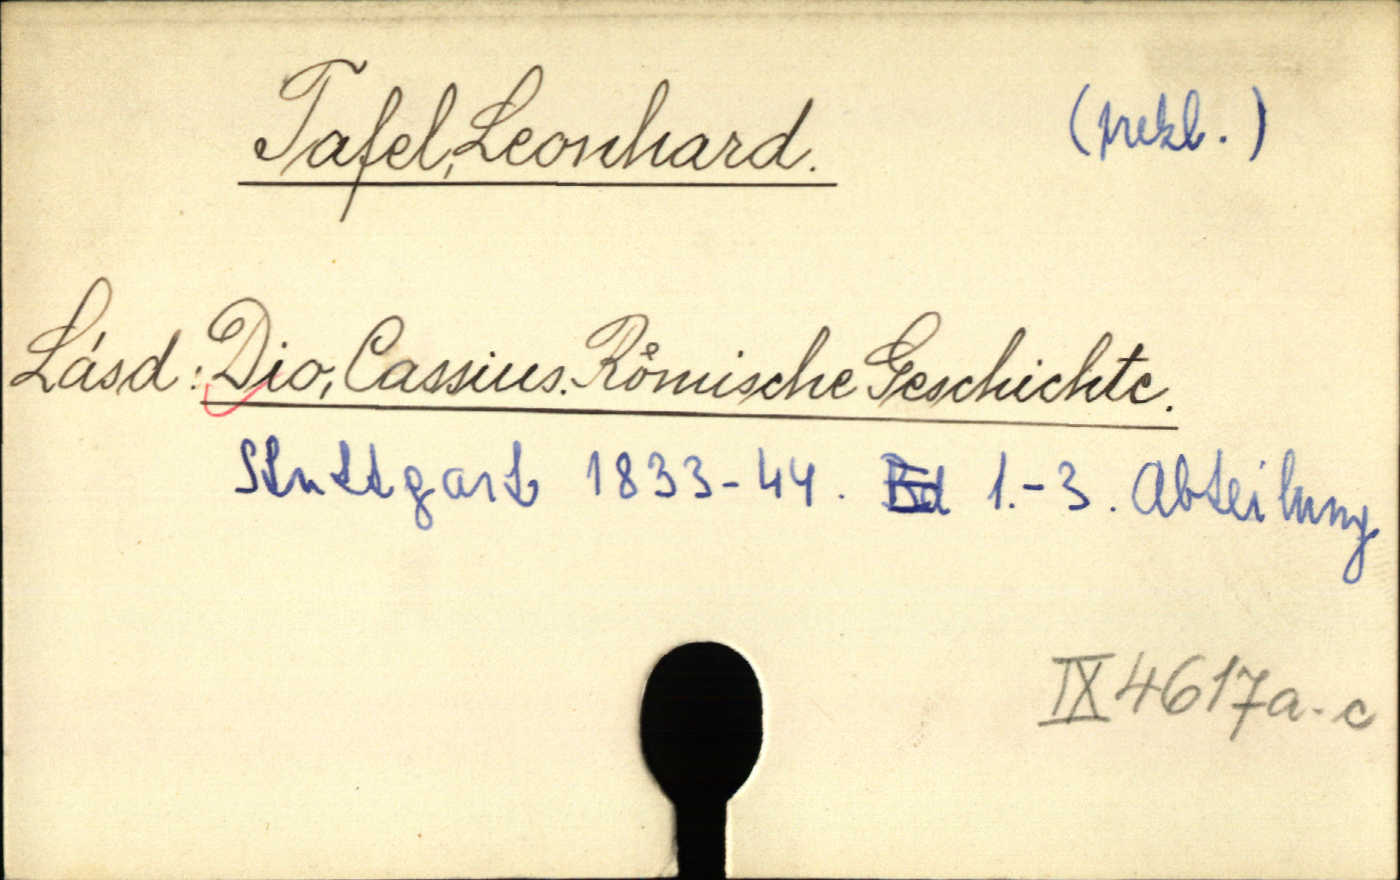 Tafel, Leonhard.
Lásd: Dio, Cassius. Römische Geschichte.
Stuttgart 1833-44. 1.-3. Abteilung
IX 4617a-c